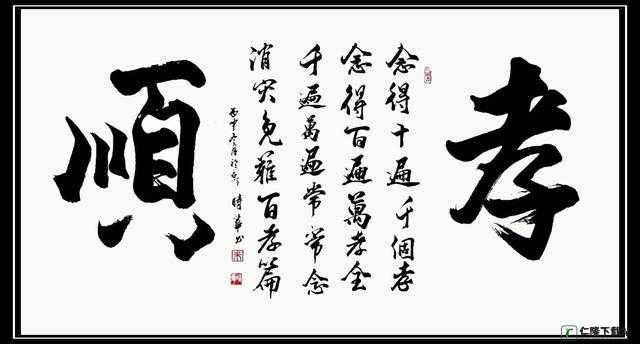 孝
念得十遍千個孝
念得百遍萬孝全
千遍萬遍常常念
消灾免難百孝篇
時華书
順
仁隆下载